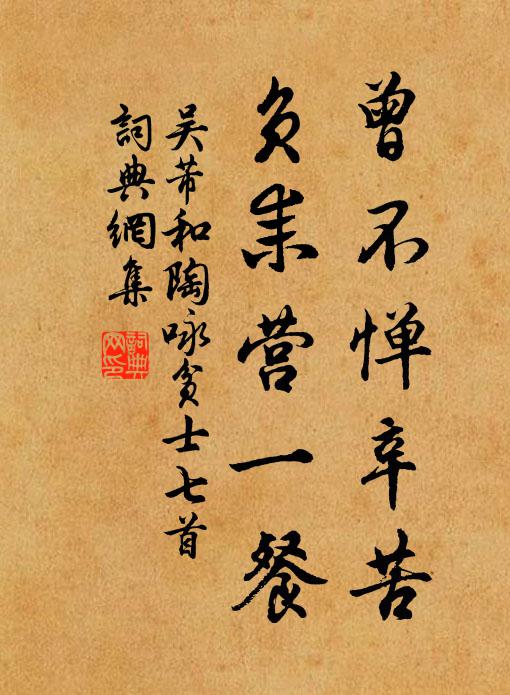 曾不惮辛苦
负耒营一餐
吴芾和陶咏贫士七首
詞典網集
詞典网印